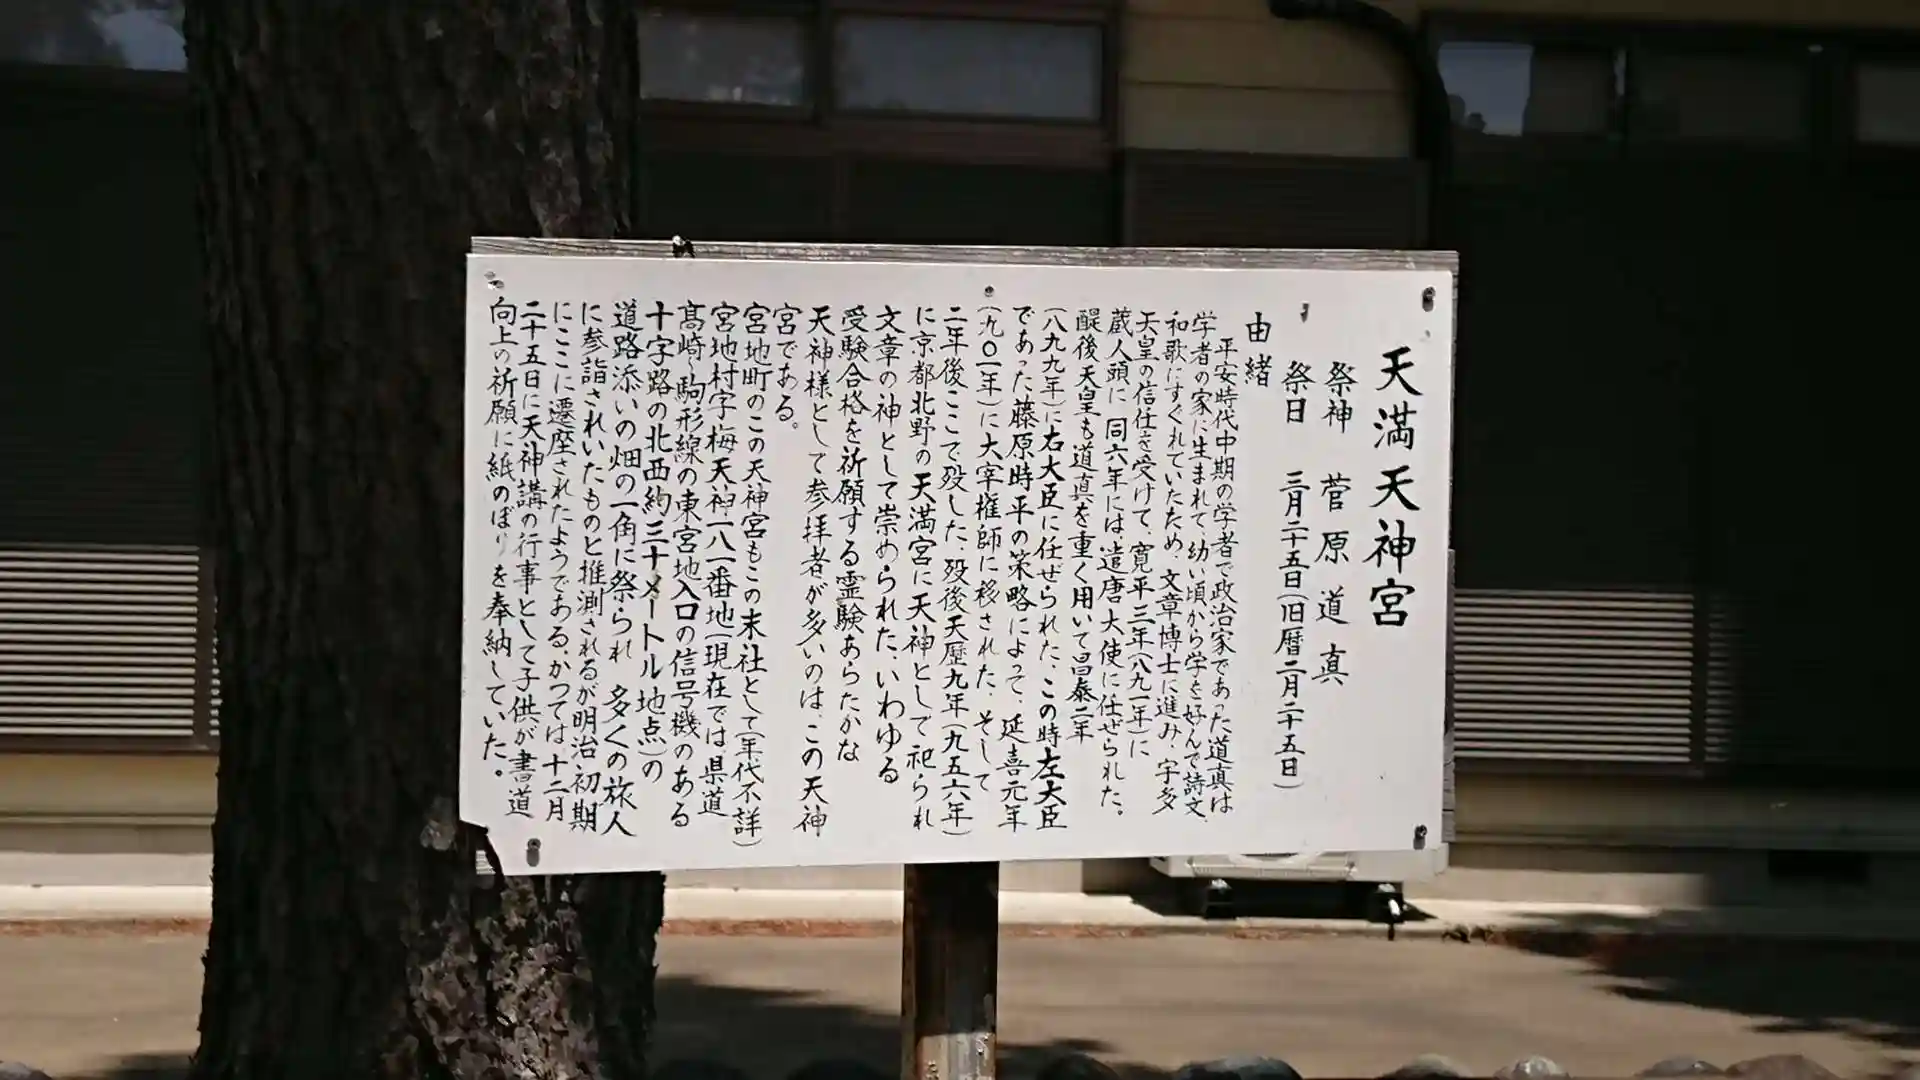 天満天神宮
祭神 菅原道真
祭日 三月二十五日(旧暦二月二十五日)
由緒
平安時代中期の学者で政治家であった道真は
学者の家に生まれて、幼い頃から学を好んで詩文、
和歌にすぐれていたため、文章博士に進み、宇多
天皇の信任を受けて、寛平三年(八九一年)に
蔵人頭に、同六年には、遣唐大使に任ぜられた。
醍後天皇も道真を重く用いて昌泰二年
(八九九年)に右大臣に任ぜられた、この時左大臣
であった藤原時平の策略によって、延喜元年
(九〇一年)に大宰権師に移された、そして
二年後ここで歿した、歿後天歴九年(九五六年)
に京都北野の天満宮に天神として祀られ
文章の神として崇められた、いわゆる
受験合格を祈願する霊験あらたかな
天神様として参拝者が多いのは、この天神
宮である。
宮地町のこの天神宮もこの末社として(年代不詳)
宮地村字梅天神一八一番地(現在では、県道
高崎〜駒形線の東宮地入口の信号機のある
十字路の北西約三十メートル地点)の
道路添いの畑の一角に祭られ 多くの旅人
に参詣されいたものと推測されるが明治初期
にここに遷座されたようである、かつては十二月
二十五日に天神講の行事として子供が書道
向上の祈願に紙のぼりを奉納していた。